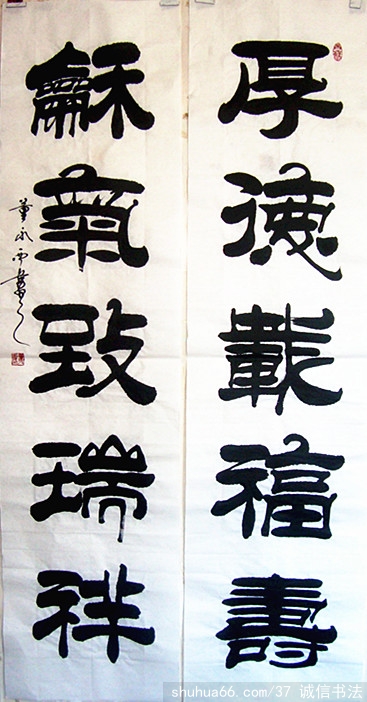 厚德載福壽
龢氣致瑞祥
董永西書
shuhua66.com/37 诚信书法